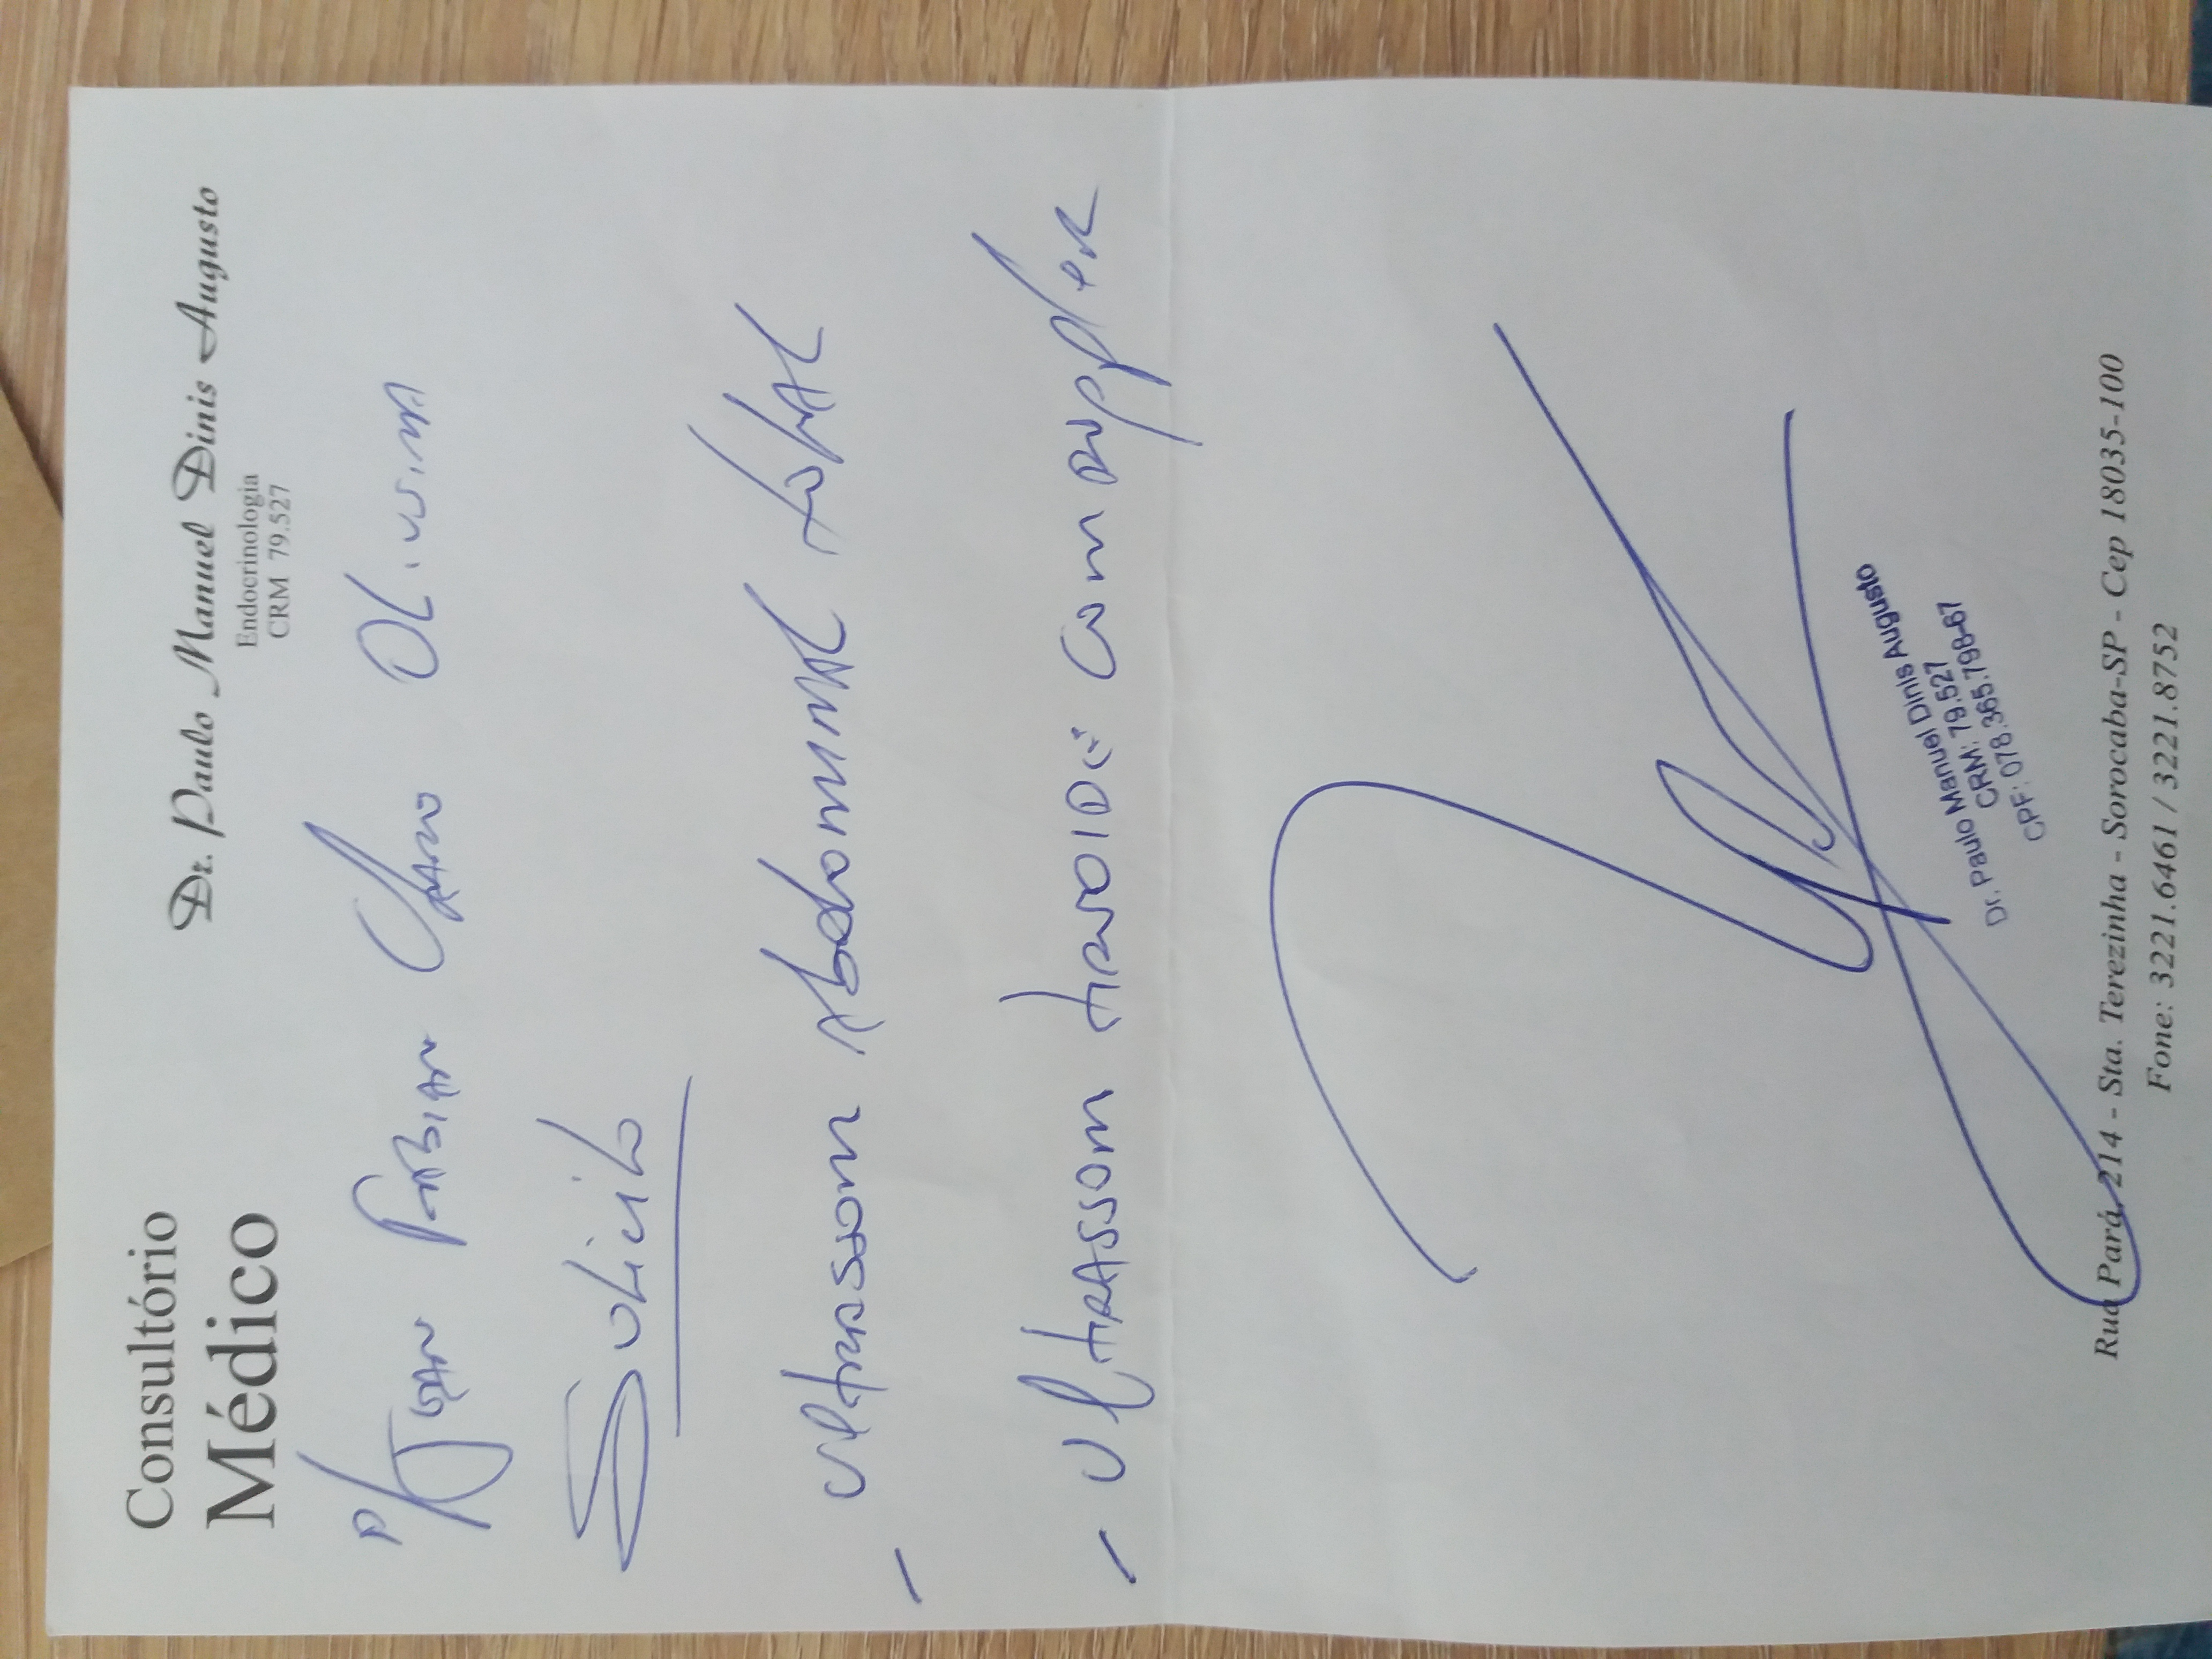 Consultório
Médico
Dr. Paulo Manuel Dinis Augusto
Endocrinologia
CRM 79.527
P/ Fabian Oliveira
Solicito
- Ultrassom Abdominal total
- Ultrassom tireoide com doppler
Dr. Paulo Manuel Dinis Augusto
CRM: 79.527
CPF: 078.365.798-67
Rua Pará, 214 - Sta. Terezinha - Sorocaba-SP - Cep 18035-100
Fone: 3221.6461 / 3221.8752